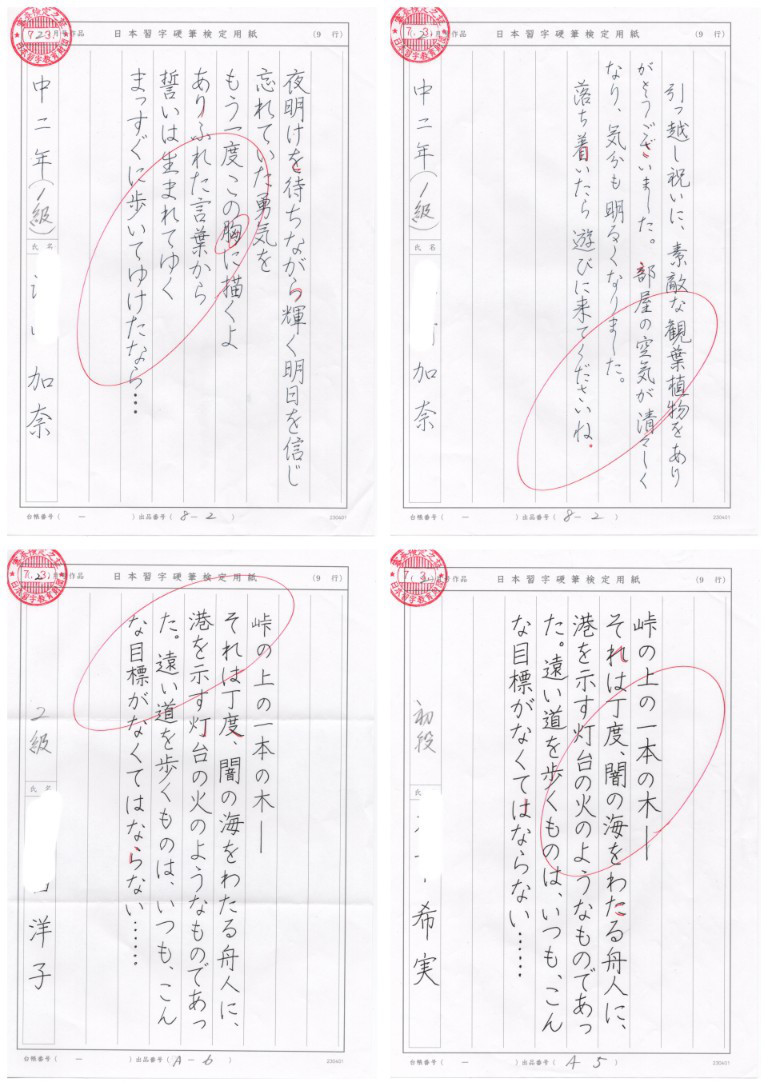 日本習字硬筆検定用紙
(9 行)
夜明けを待ちながら輝く明日を信じ
忘れていた勇気を
もう一度この胸に描くよ
ありふれた言葉から
誓いは生まれてゆく
まっすぐに歩いてゆけたなら…
中二年(1級)
氏名
加奈
台帳番号( ー )出品番号( 8-2 )
230401
日本習字硬筆検定用紙
(9 行)
引っ越し祝いに、素敵な観葉植物をあり
がとうございました。部屋の空気が清々しく
なり、気分も明るくなりました。
落ち着いたら遊びに来てくださいね。
中二年(1級)
氏名
加奈
台帳番号( ー )出品番号( 8-2 )
230401
日本習字硬筆検定用紙
(9 行)
峠の上の一本の木―
それは丁度、闇の海をわたる舟人に、
港を示す灯台の火のようなものであっ
た。遠い道を歩くものは、いつも、こん
な目標がなくてはならない……
2級
氏名
洋子
台帳番号( ー )出品番号( A-6 )
230401
日本習字硬筆検定用紙
(9 行)
峠の上の一本の木―
それは丁度、闇の海をわたる舟人に、
港を示す灯台の火のようなものであっ
た。遠い道を歩くものは、いつも、こん
な目標がなくてはならない……
初段
氏名
希実
台帳番号( ー )出品番号( A 5 )
230401